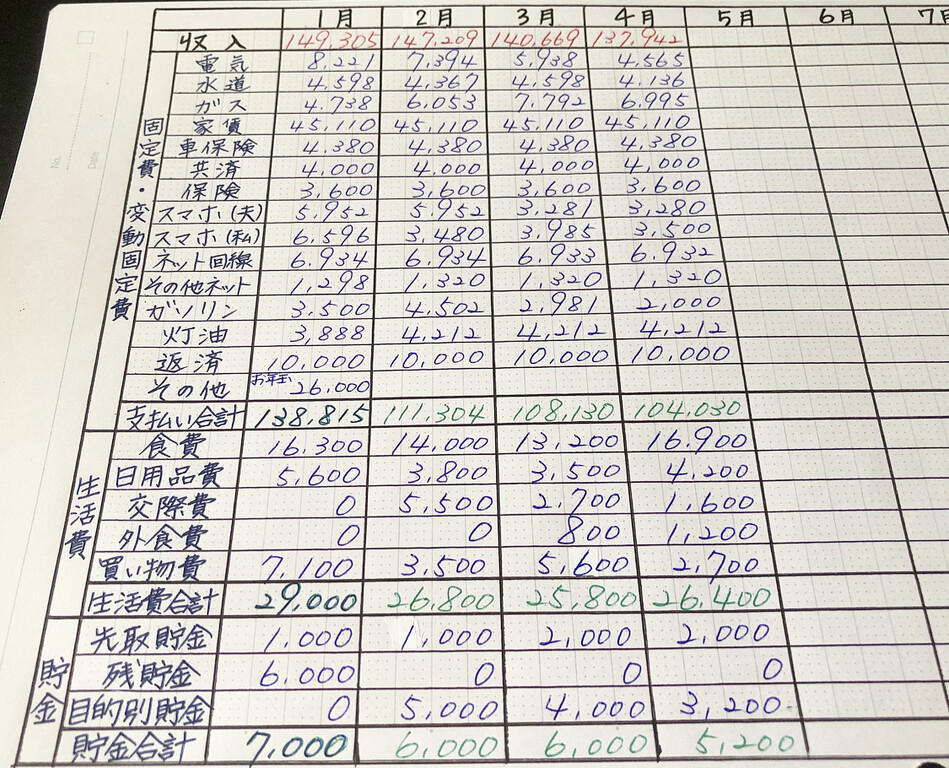 1月 2月 3月 4月 5月 6月 7月
収入 149,305 147,209 140,669 137,942
固定費・変動固定費
電気 8,221 7,394 5,938 4,565
水道 4,598 4,367 4,598 4,136
ガス 4,738 6,053 7,792 6,995
家賃 45,110 45,110 45,110 45,110
車保険 4,380 4,380 4,380 4,380
共済 4,000 4,000 4,000 4,000
保険 3,600 3,600 3,600 3,600
スマホ(夫) 5,952 5,952 3,281 3,280
スマホ(私) 6,596 3,480 3,985 3,500
ネット回線 6,934 6,934 6,933 6,932
その他ネット 1,298 1,320 1,320 1,320
ガソリン 3,500 4,502 2,981 2,000
灯油 3,888 4,212 4,212 4,212
返済 10,000 10,000 10,000 10,000
その他 お年玉 26,000
支払い合計 138,815 111,304 108,130 104,030
生活費
食費 16,300 14,000 13,200 16,900
日用品費 5,600 3,800 3,500 4,200
交際費 0 5,500 2,700 1,600
外食費 0 0 800 1,200
買い物費 7,100 3,500 5,600 2,700
生活費合計 29,000 26,800 25,800 26,400
貯金
先取貯金 1,000 1,000 2,000 2,000
残貯金 6,000 0 0 0
目的別貯金 0 5,000 4,000 3,200
貯金合計 7,000 6,000 6,000 5,200
No.
Date